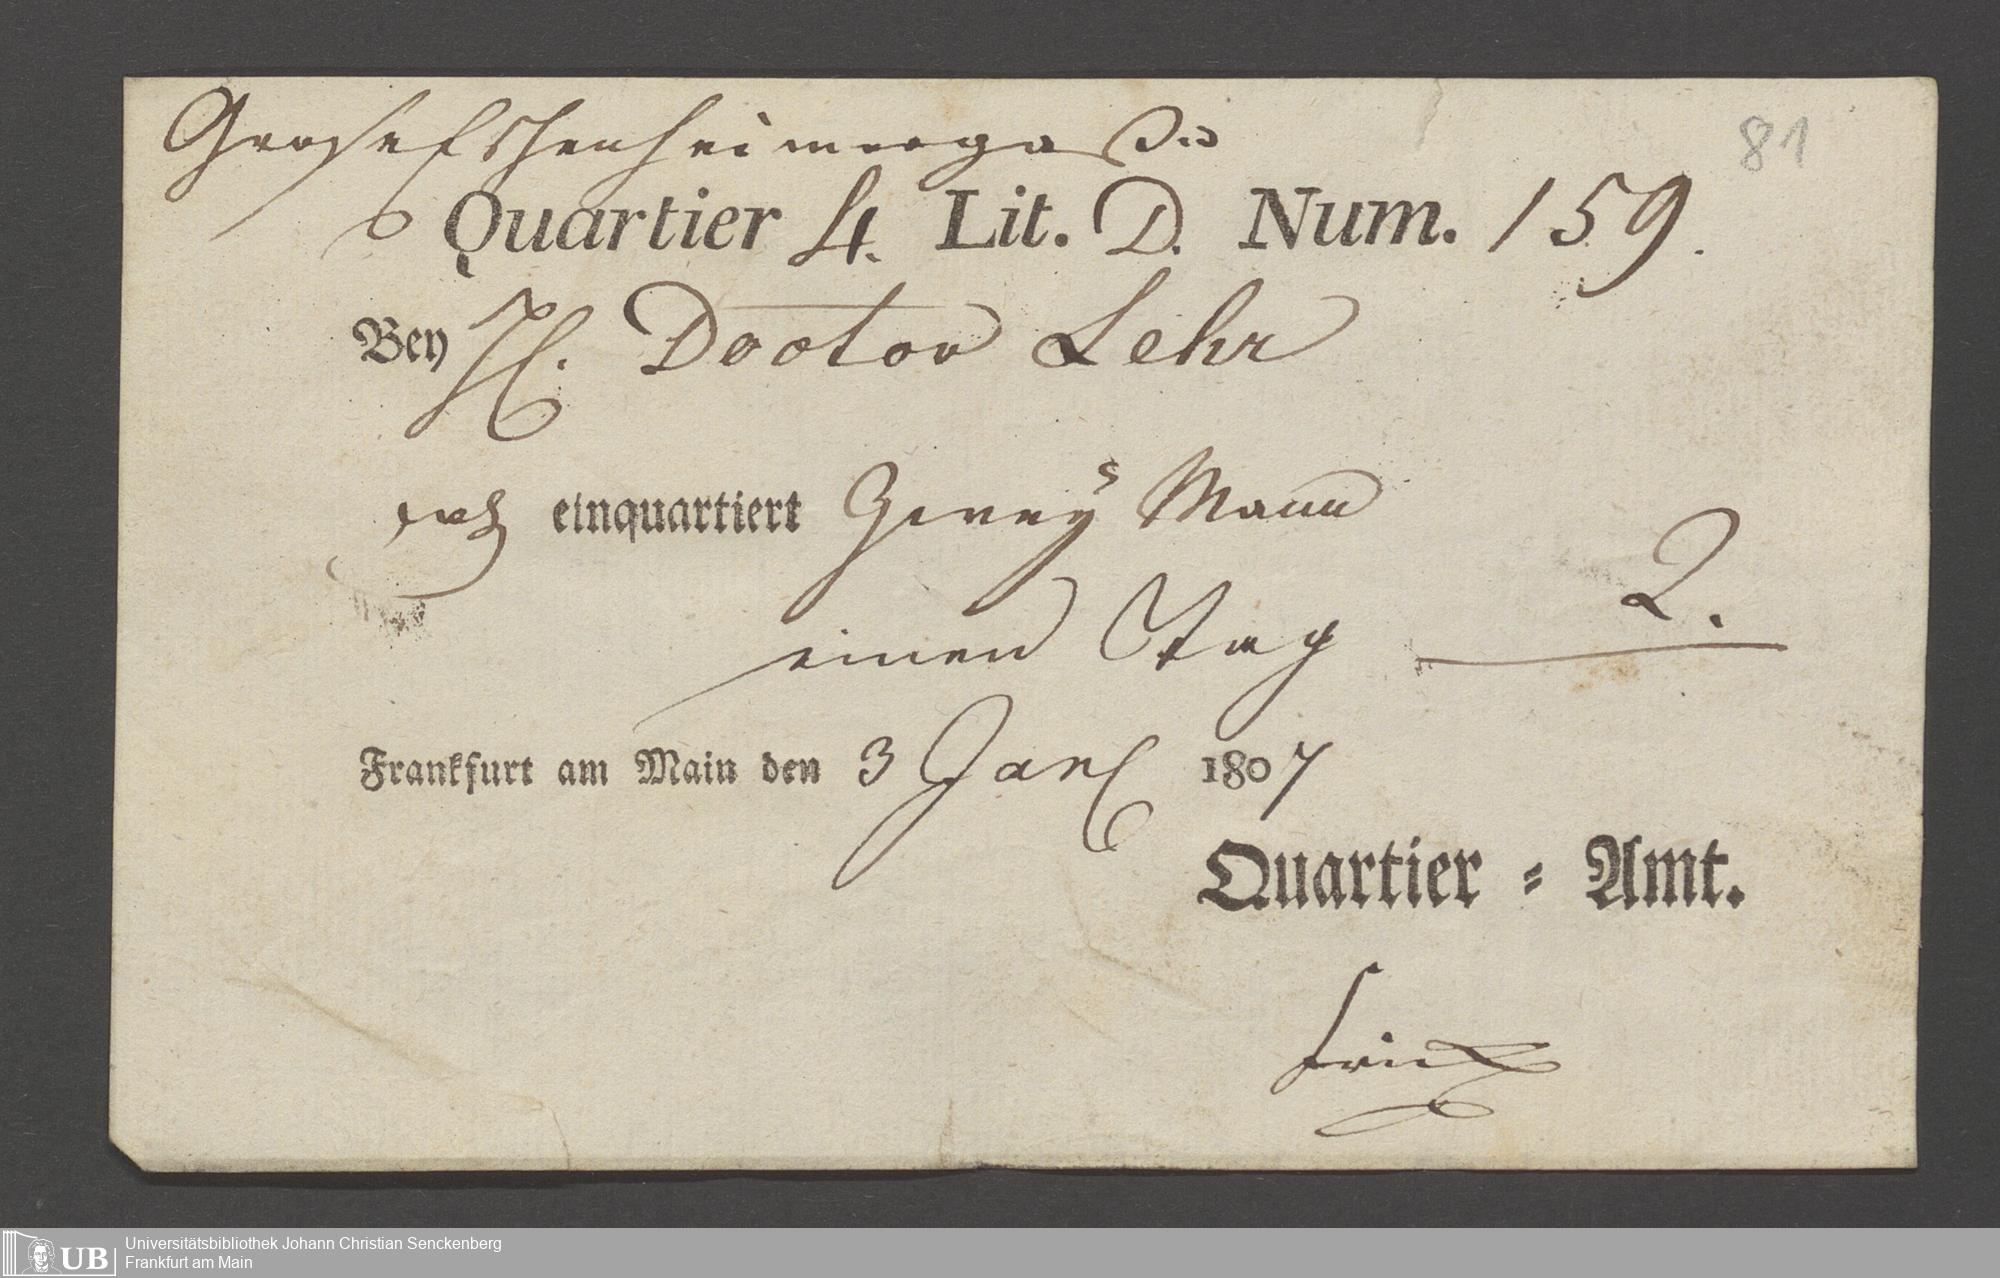 Grosefshenheimergaß
81
Quartier 4. Lit. D. Num. 159.
Bey H. Doctor Lehr
einquartiert Zwey Mann
einen Tag 2.
Frankfurt am Main den 3 Jan 1807
Quartier = Amt.
UB Universitätsbibliothek Johann Christian Senckenberg
Frankfurt am Main